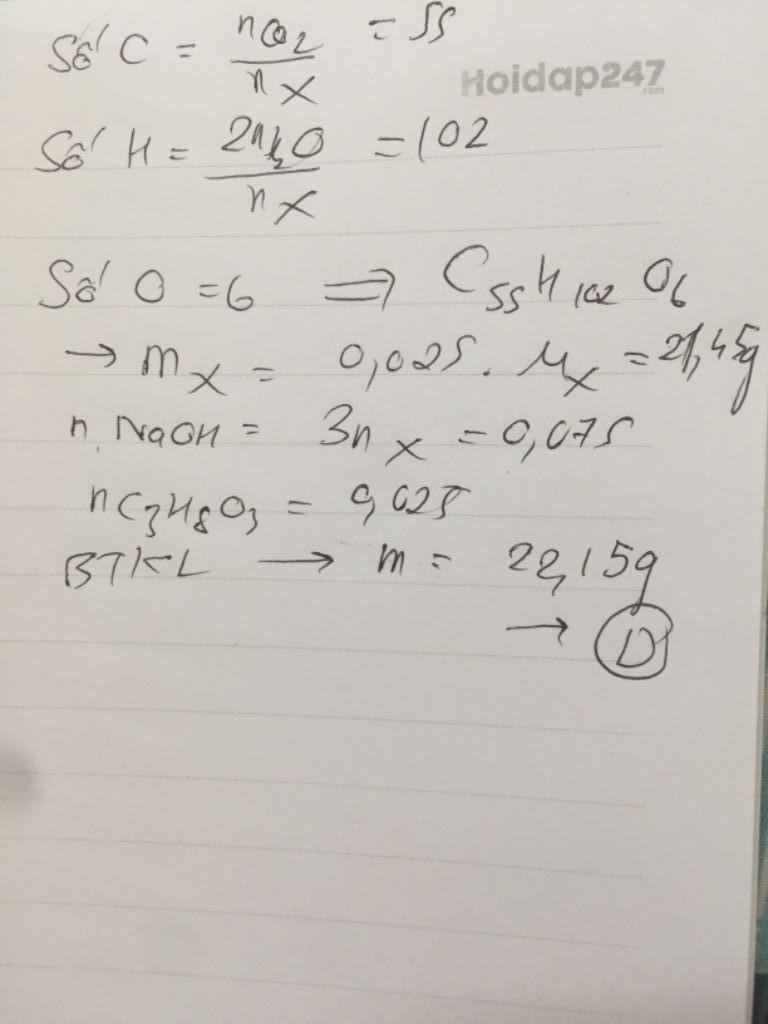 Số C = nCO2 / nX = 55
Hoidap247
.com
Số H = 2nH2O / nX = 102
Số O = 6 => C55H102O6
→ mX = 0,025. MX = 21,45g
n NaOH = 3nX = 0,075
nC3H8O3 = 0,025
BTKL → m = 22,15g
→ D